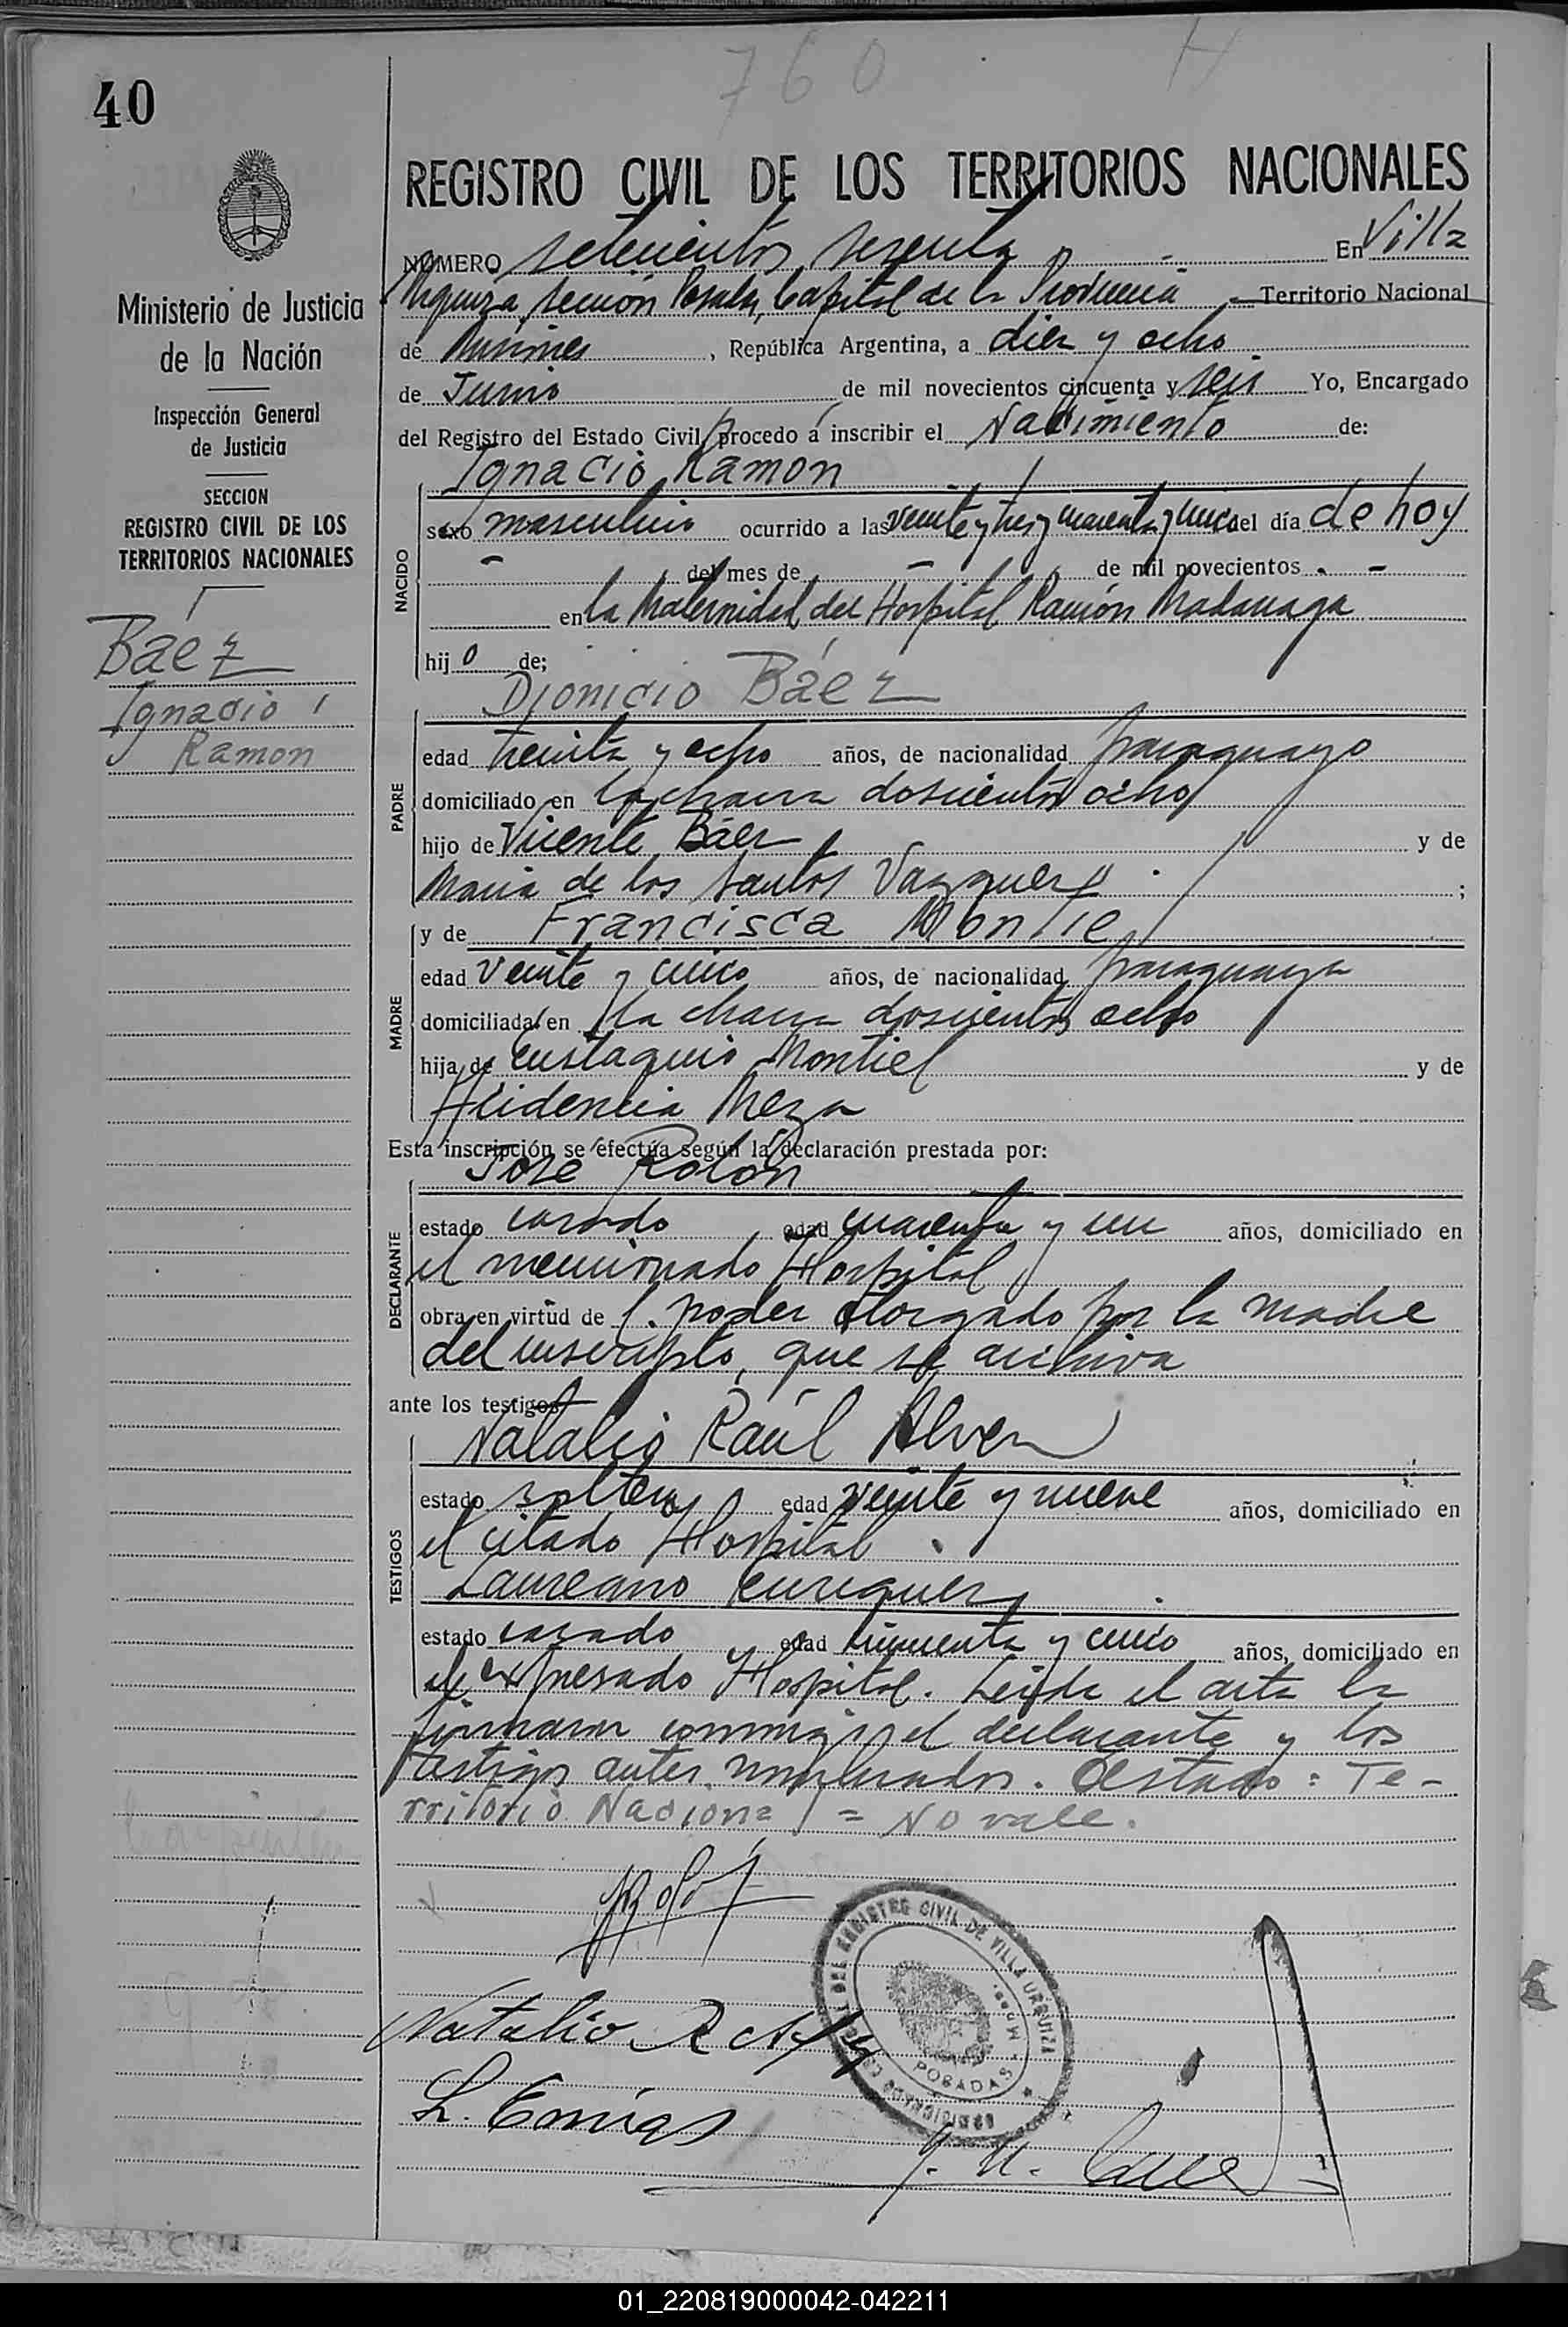 760
40
REGISTRO CIVIL DE LOS TERRITORIOS NACIONALES
NÚMERO setecientos sesenta - En Villa
Urquiza, sección Posadas, Capital de la Provincia - Territorio Nacional
de Misiones, República Argentina, a diez y ocho
de Junio de mil novecientos cincuenta y seis Yo, Encargado
del Registro del Estado Civil, procedo a inscribir el Nacimiento de:
Ministerio de Justicia
de la Nación
Inspección General
de Justicia
SECCION
REGISTRO CIVIL DE LOS
TERRITORIOS NACIONALES
Báez
Ignacio
Ramon
NACIDO
Ignacio Ramon
sexo masculino ocurrido a las veinte y tres y cuarenta y cinco del día de hoy
- del mes de - de mil novecientos - -
en la Maternidad del Hospital Ramón Madariaga
hijo de;
PADRE
Dionicio Báez
edad treinta y ocho años, de nacionalidad paraguayo
domiciliado en la chacra doscientos ocho
hijo de Vicente Báez y de
Maria de los Santos Vazquez ;
MADRE
y de Francisca Montiel
edad veinte y cinco años, de nacionalidad paraguaya
domiciliada en la chacra doscientos ocho
hija de Eustaquio Montiel y de
Meza
Esta inscripción se efectúa según la declaración prestada por:
DECLARANTE
José Rolón
estado casado edad cuarenta y un años, domiciliado en
el mencionado Hospital
obra en virtud de poder otorgado por la madre
del inscripto, que se archiva
ante los testigos
TESTIGOS
Natalio Raúl Alvez
estado soltero edad veinte y nueve años, domiciliado en
el citado Hospital
Laureano Enriquez
estado casado edad cincuenta y cinco años, domiciliado en
el expresado Hospital. Leída el acta la
firmaron conmigo el declarante y los
testigos antes nombrados. Testado: Te-
rritorio Nacional = No vale.
Natalio R
L.
REGISTRO CIVIL DE VILLA URQUIZA
POSADAS
01_220819000042-042211